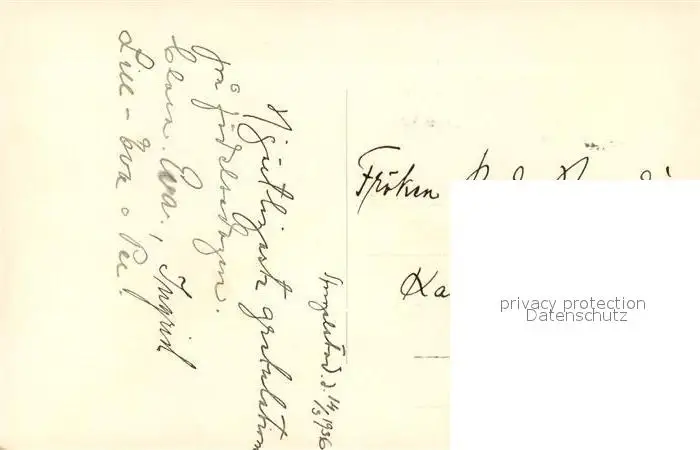 d. 14/3 1936
Hjärtligaste gratulationer
på födelsedagen.
Clara. Eva., Ingrid
Lill-Eva o Per!
Fröken
Ka
privacy protection
Datenschutz